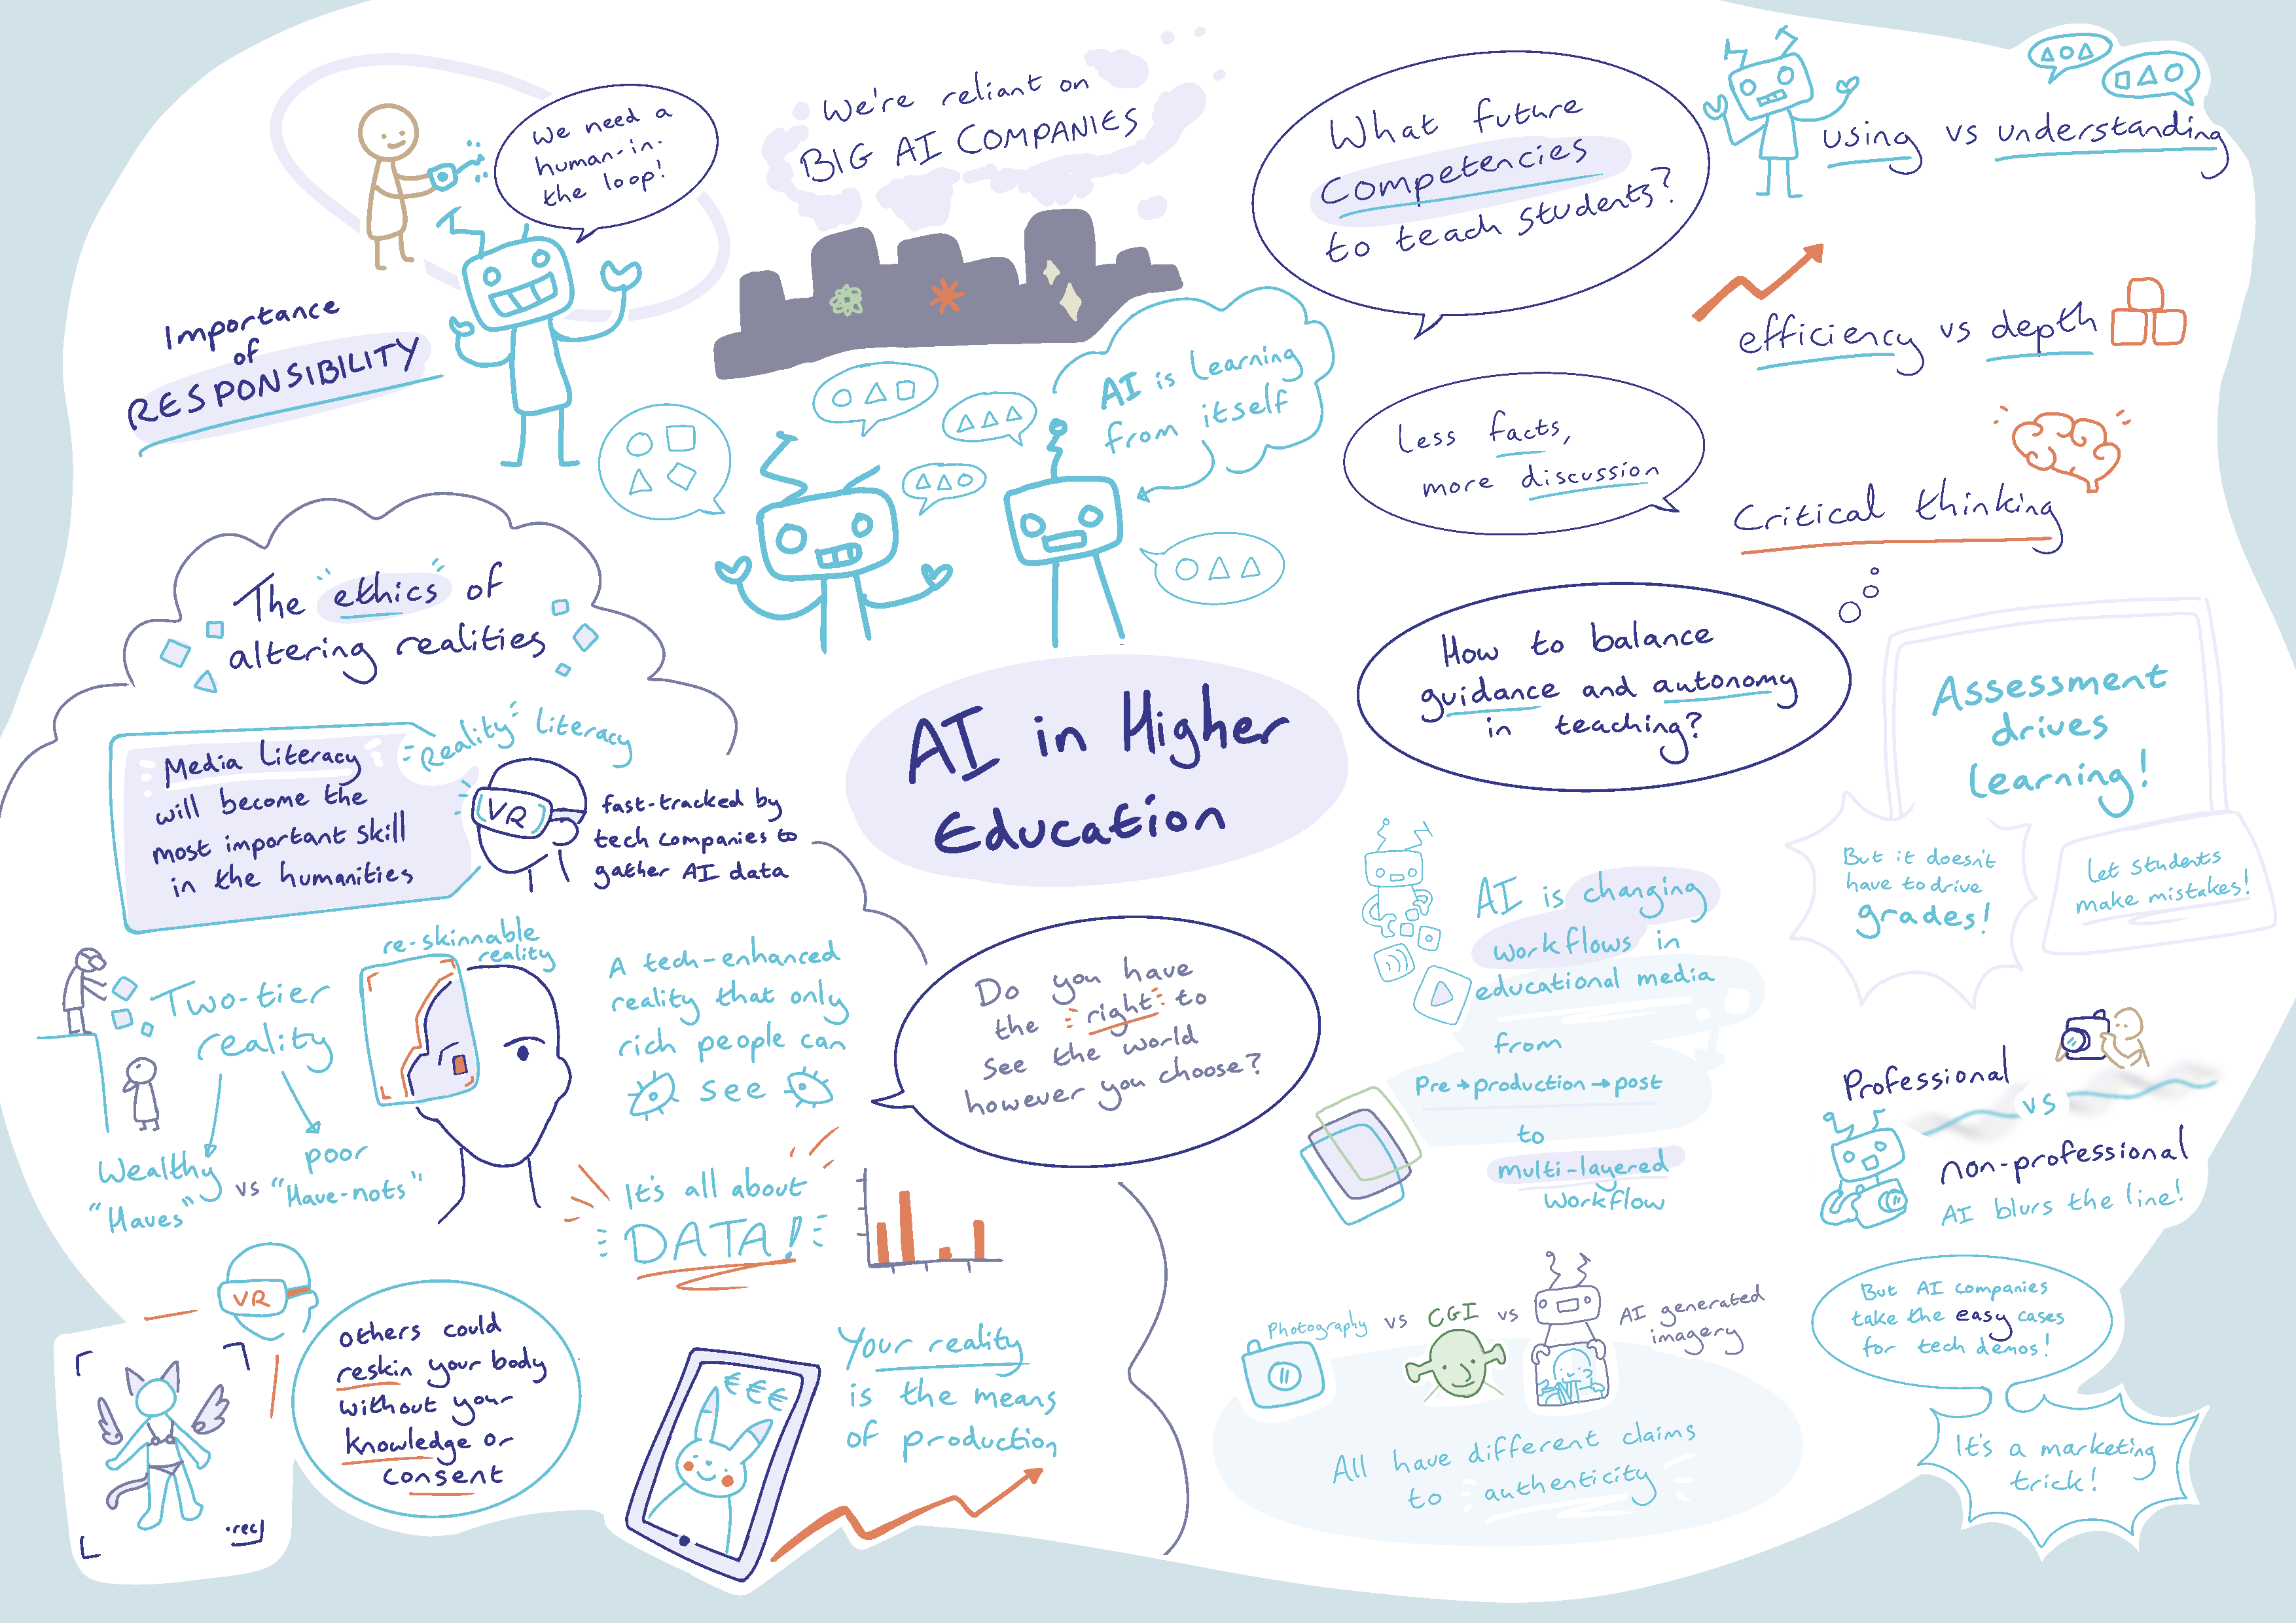 We need a
human-in-
the loop!
Importance
of
RESPONSIBILITY
We're reliant on
BIG AI COMPANIES
AI is learning
from itself
What future
competencies
to teach students?
using vs understanding
efficiency vs depth
Less facts,
more discussion
Critical thinking
How to balance
guidance and autonomy
in teaching?
Assessment
drives
learning!
But it doesn't
have to drive
grades!
Let students
make mistakes!
AI in Higher
Education
The ethics of
altering realities
Media Literacy
will become the
most important skill
in the humanities
Reality Literacy
VR
fast-tracked by
tech companies to
gather AI data
Two-tier
reality
Wealthy
"Haves"
vs
poor
"Have-nots"
re-skinnable
reality
A tech-enhanced
reality that only
rich people can
see
Do you have
the right to
see the world
however you choose?
It's all about
DATA!
VR
.rec
others could
reskin your body
without your
knowledge or
consent
€€€
Your reality
is the means
of production
AI is changing
workflows in
educational media
from
Pre → production → post
to
multi-layered
workflow
Professional
vs
non-professional
AI blurs the line!
Photography vs CGI vs AI generated
imagery
All have different claims
to authenticity
But AI companies
take the easy cases
for tech demos!
It's a marketing
trick!